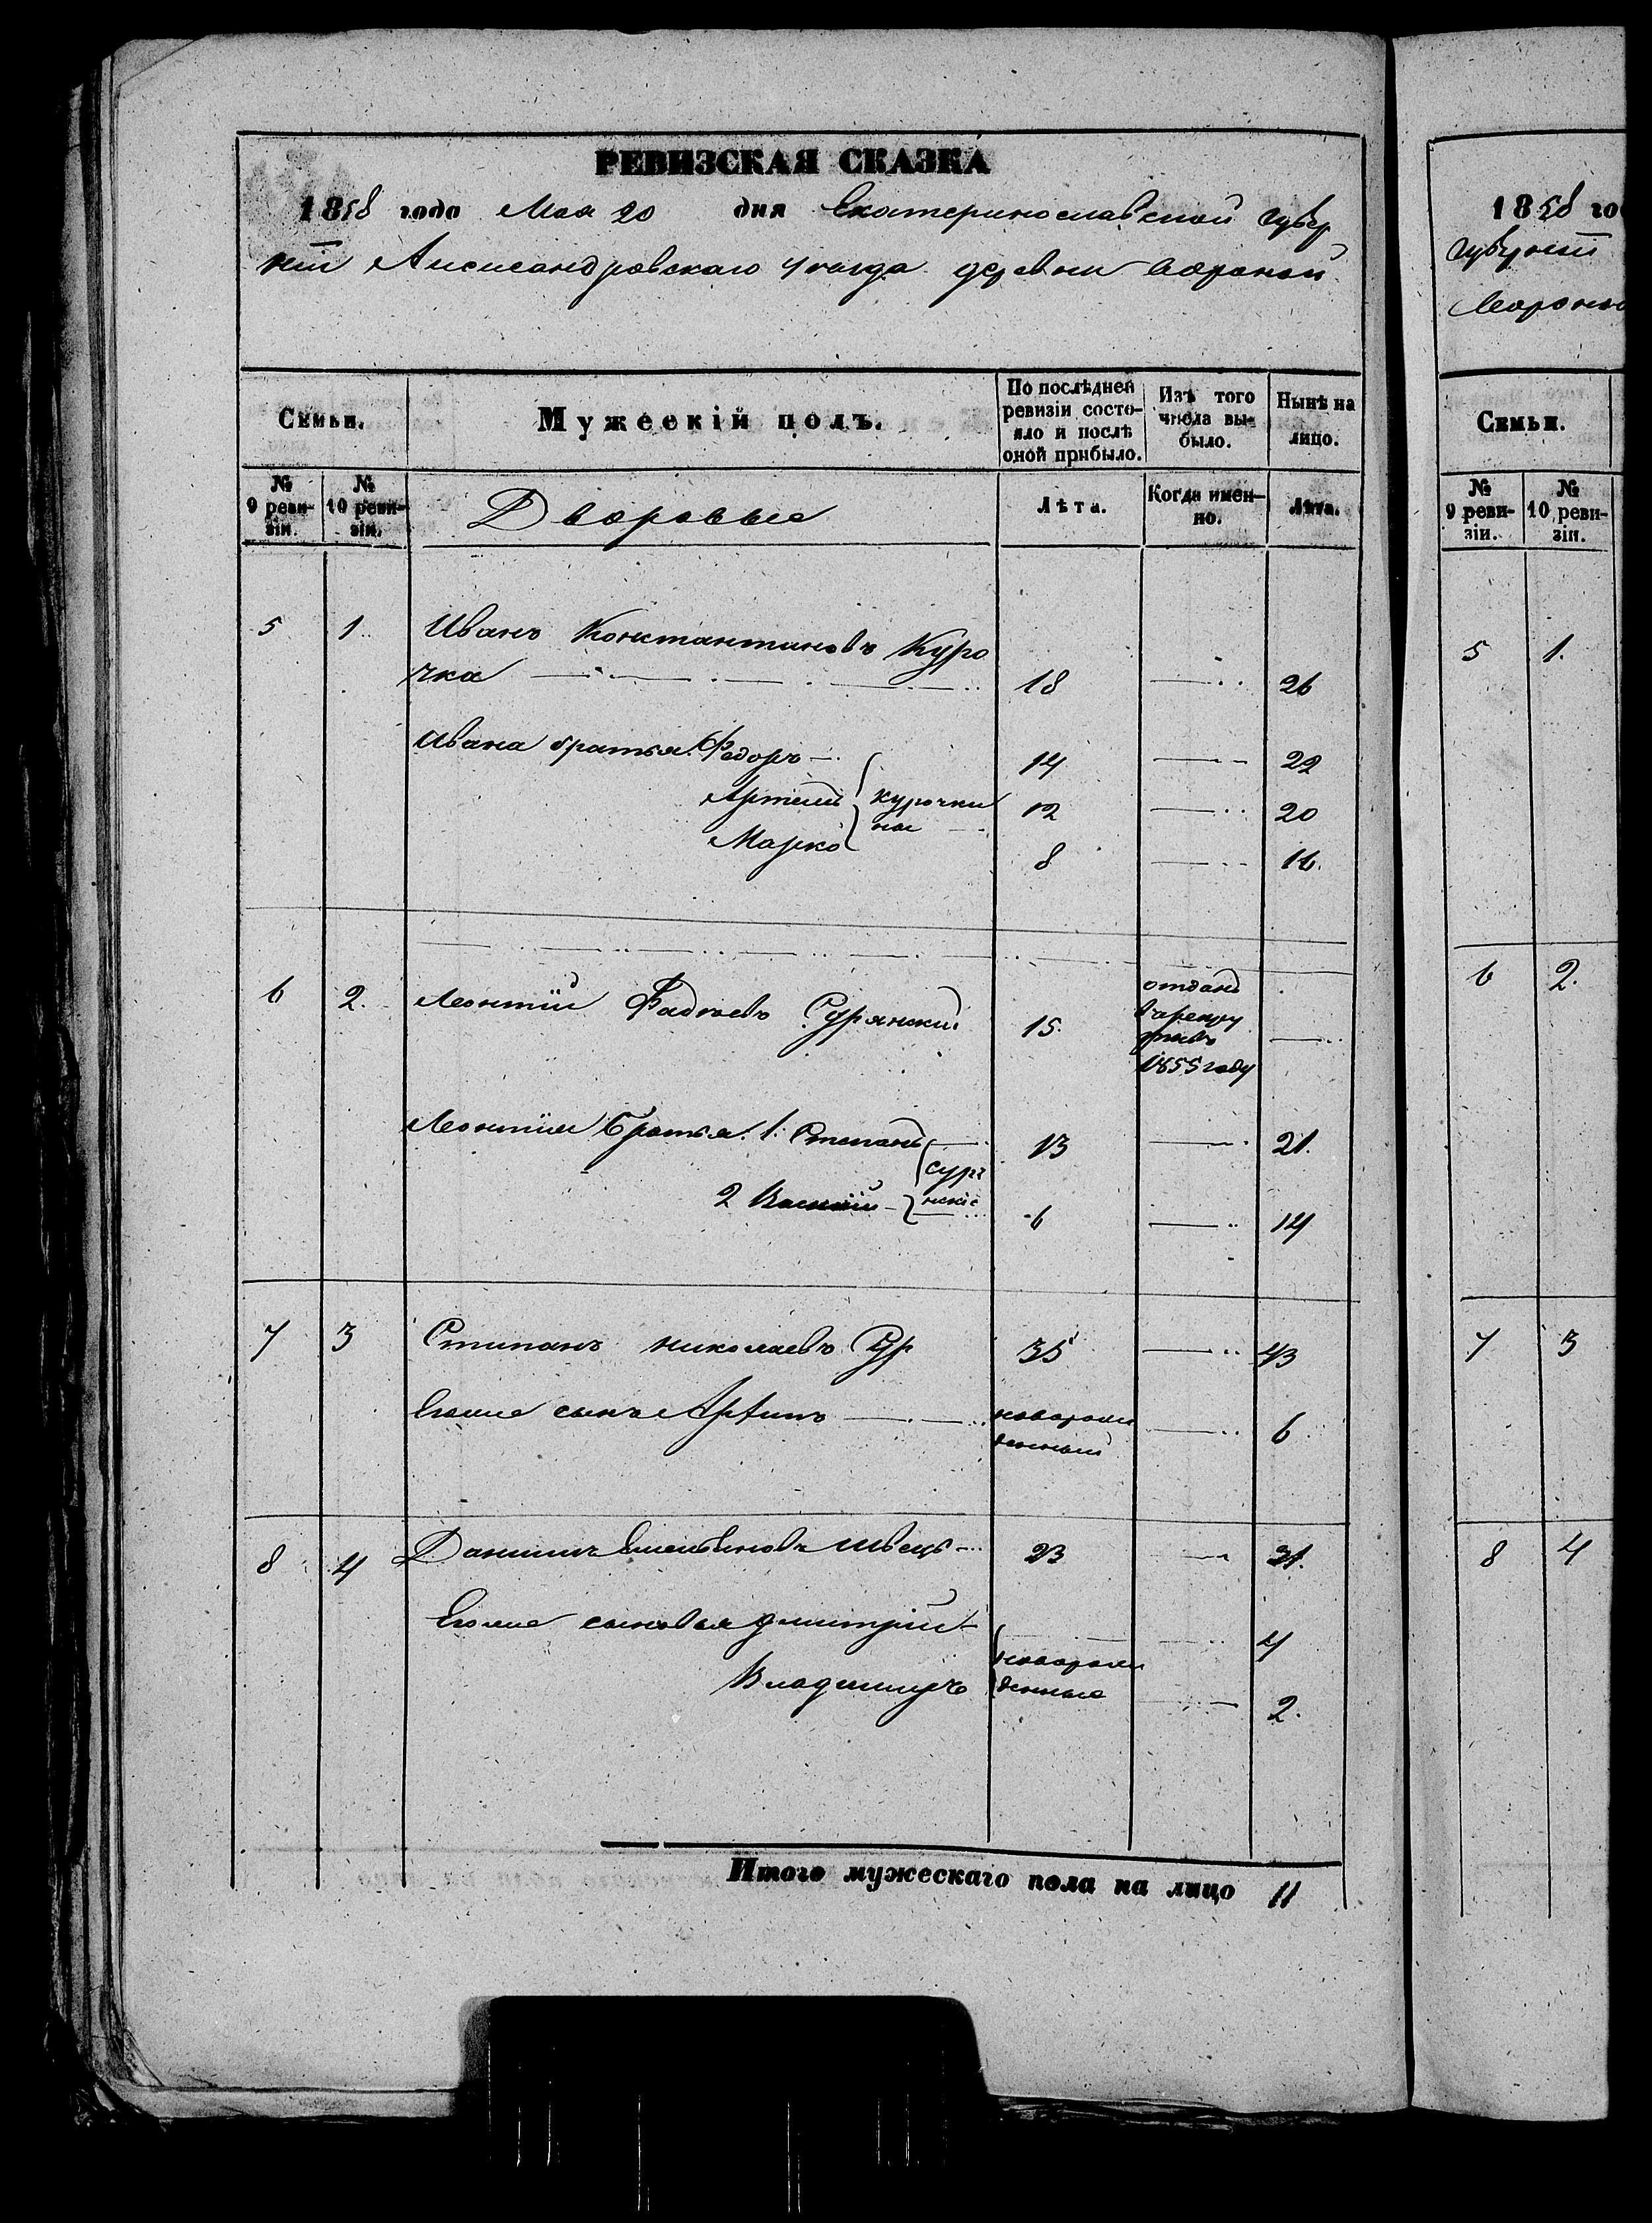 РЕВИЗСКАЯ СКАЗКА
1858 года Мая 20 дня Екатеринославской губер
ніи Александровскаго уезда деревни Вороной
Семьи.
Мужескій полъ.
По послѣдней ревизіи состо-
яло и послѣ
оной прибыло.
Изъ того
числа вы-
было.
Нынѣ на
лицо.
№
9 реви-
зіи.
№
10 реви-
зіи.
Дворовые
Лѣта.
Когда имен-
но.
Лѣта.
5 1. Иванъ Константиновъ Куро
чка 18 26
Ивана братья: Федоръ 14 22
Артемій 12 20
Курочки
ны
Марко 8 16.
6 2. Леонтій Фадѣевъ Сурянскій 15. отданъ
1855 году
Леонтія братья: 1. Степанъ 13 21.
2 Василій 6 14
Суря
нскіе
7 3 Стипанъ Николаевъ Сур 35 43
Егоже сынъ новорож
денный 6
8 4 Данило Емельяновъ Швецъ 23 31.
Егоже сыновья Дмитрій 4
новорож
денные
Владимиръ 2.
Итого мужескаго пола на лицо 11
1858 го
губерніи
Вороно
Семьи.
№
9 реви-
зіи.
№
10 реви-
зіи.
5 1.
6 2.
7 3
8 4